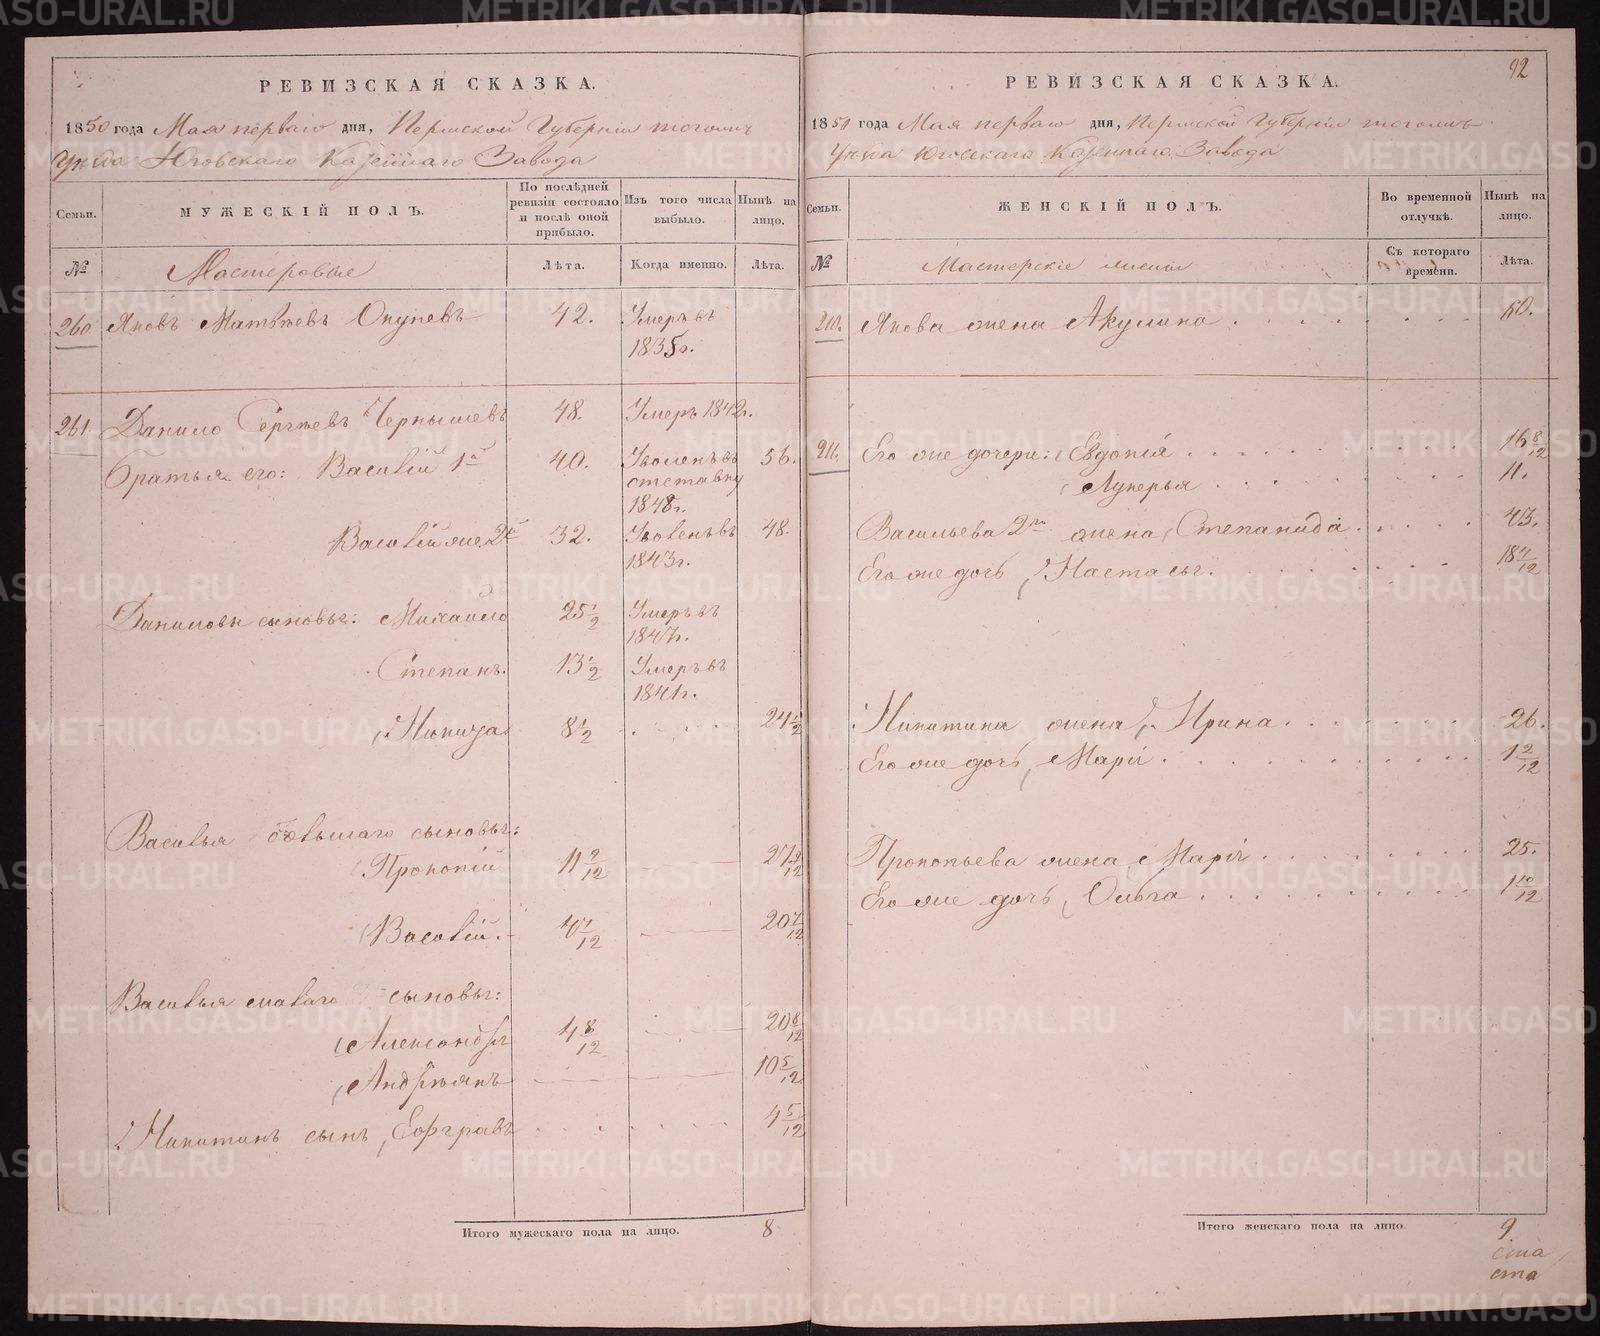 РЕВИЗСКАЯ СКАЗКА.
1850 года Мая перваго дня, Пермской Губерніи тогожъ
Уѣзда Юговскаго Казеннаго Завода
Семьи.
МУЖЕСКІЙ ПОЛЪ.
По послѣдней ревизіи состояло и послѣ оной прибыло.
Изъ того числа выбыло.
Нынѣ на лицо.
№
Мастеровые
Лѣта.
Когда именно.
Лѣта.
260 Яковъ Матвѣевъ Окуневъ 42. Умеръ въ 1835 г.
261 Данило Сергѣевъ Чернышевъ 48. Умеръ 1842 г.
Братья его: Василій 1й 40. Уволенъ въ отставку 1848 г. 56.
Василій же 2й 32. Уволенъ въ 1843 г. 48.
Даниловы сыновья: Михаило 25 1/2 Умеръ въ 1847 г.
Степанъ. 13 1/2 Умеръ въ 1841 г.
Никита 8 1/2 24 1/2
Василья большаго сыновья:
Прокопій 11 2/12 27 2/12
Василій. 4 7/12 20 7/12
Василья малаго сыновья:
Александръ 4 8/12 20 8/12
Андреянъ 10 5/12
Никитинъ сынъ, Евграфъ 4 5/12
Итого мужескаго пола на лицо. 8
92
РЕВИЗСКАЯ СКАЗКА.
1850 года Мая перваго дня, Пермской Губерніи тогожъ
Уѣзда Юговскаго Казеннаго Завода
Семьи.
ЖЕНСКІЙ ПОЛЪ.
Во временной отлучкѣ.
Нынѣ на лицо.
№
Мастерскіе жены
Съ котораго времени.
Лѣта.
Якова жена Акулина 60.
Его же дочери: Евдокія 16 8/12
Лукерья 11.
Васильева 2го жена Степанида 43.
Его же дочь, Настасья. 18 4/12
Никитина жена Ирина 26.
Его же дочь, Марія 1 2/12
Прокопьева жена Марія 25.
Его же дочь, Ольга 1 10/12
Итого женскаго пола на лицо. 9